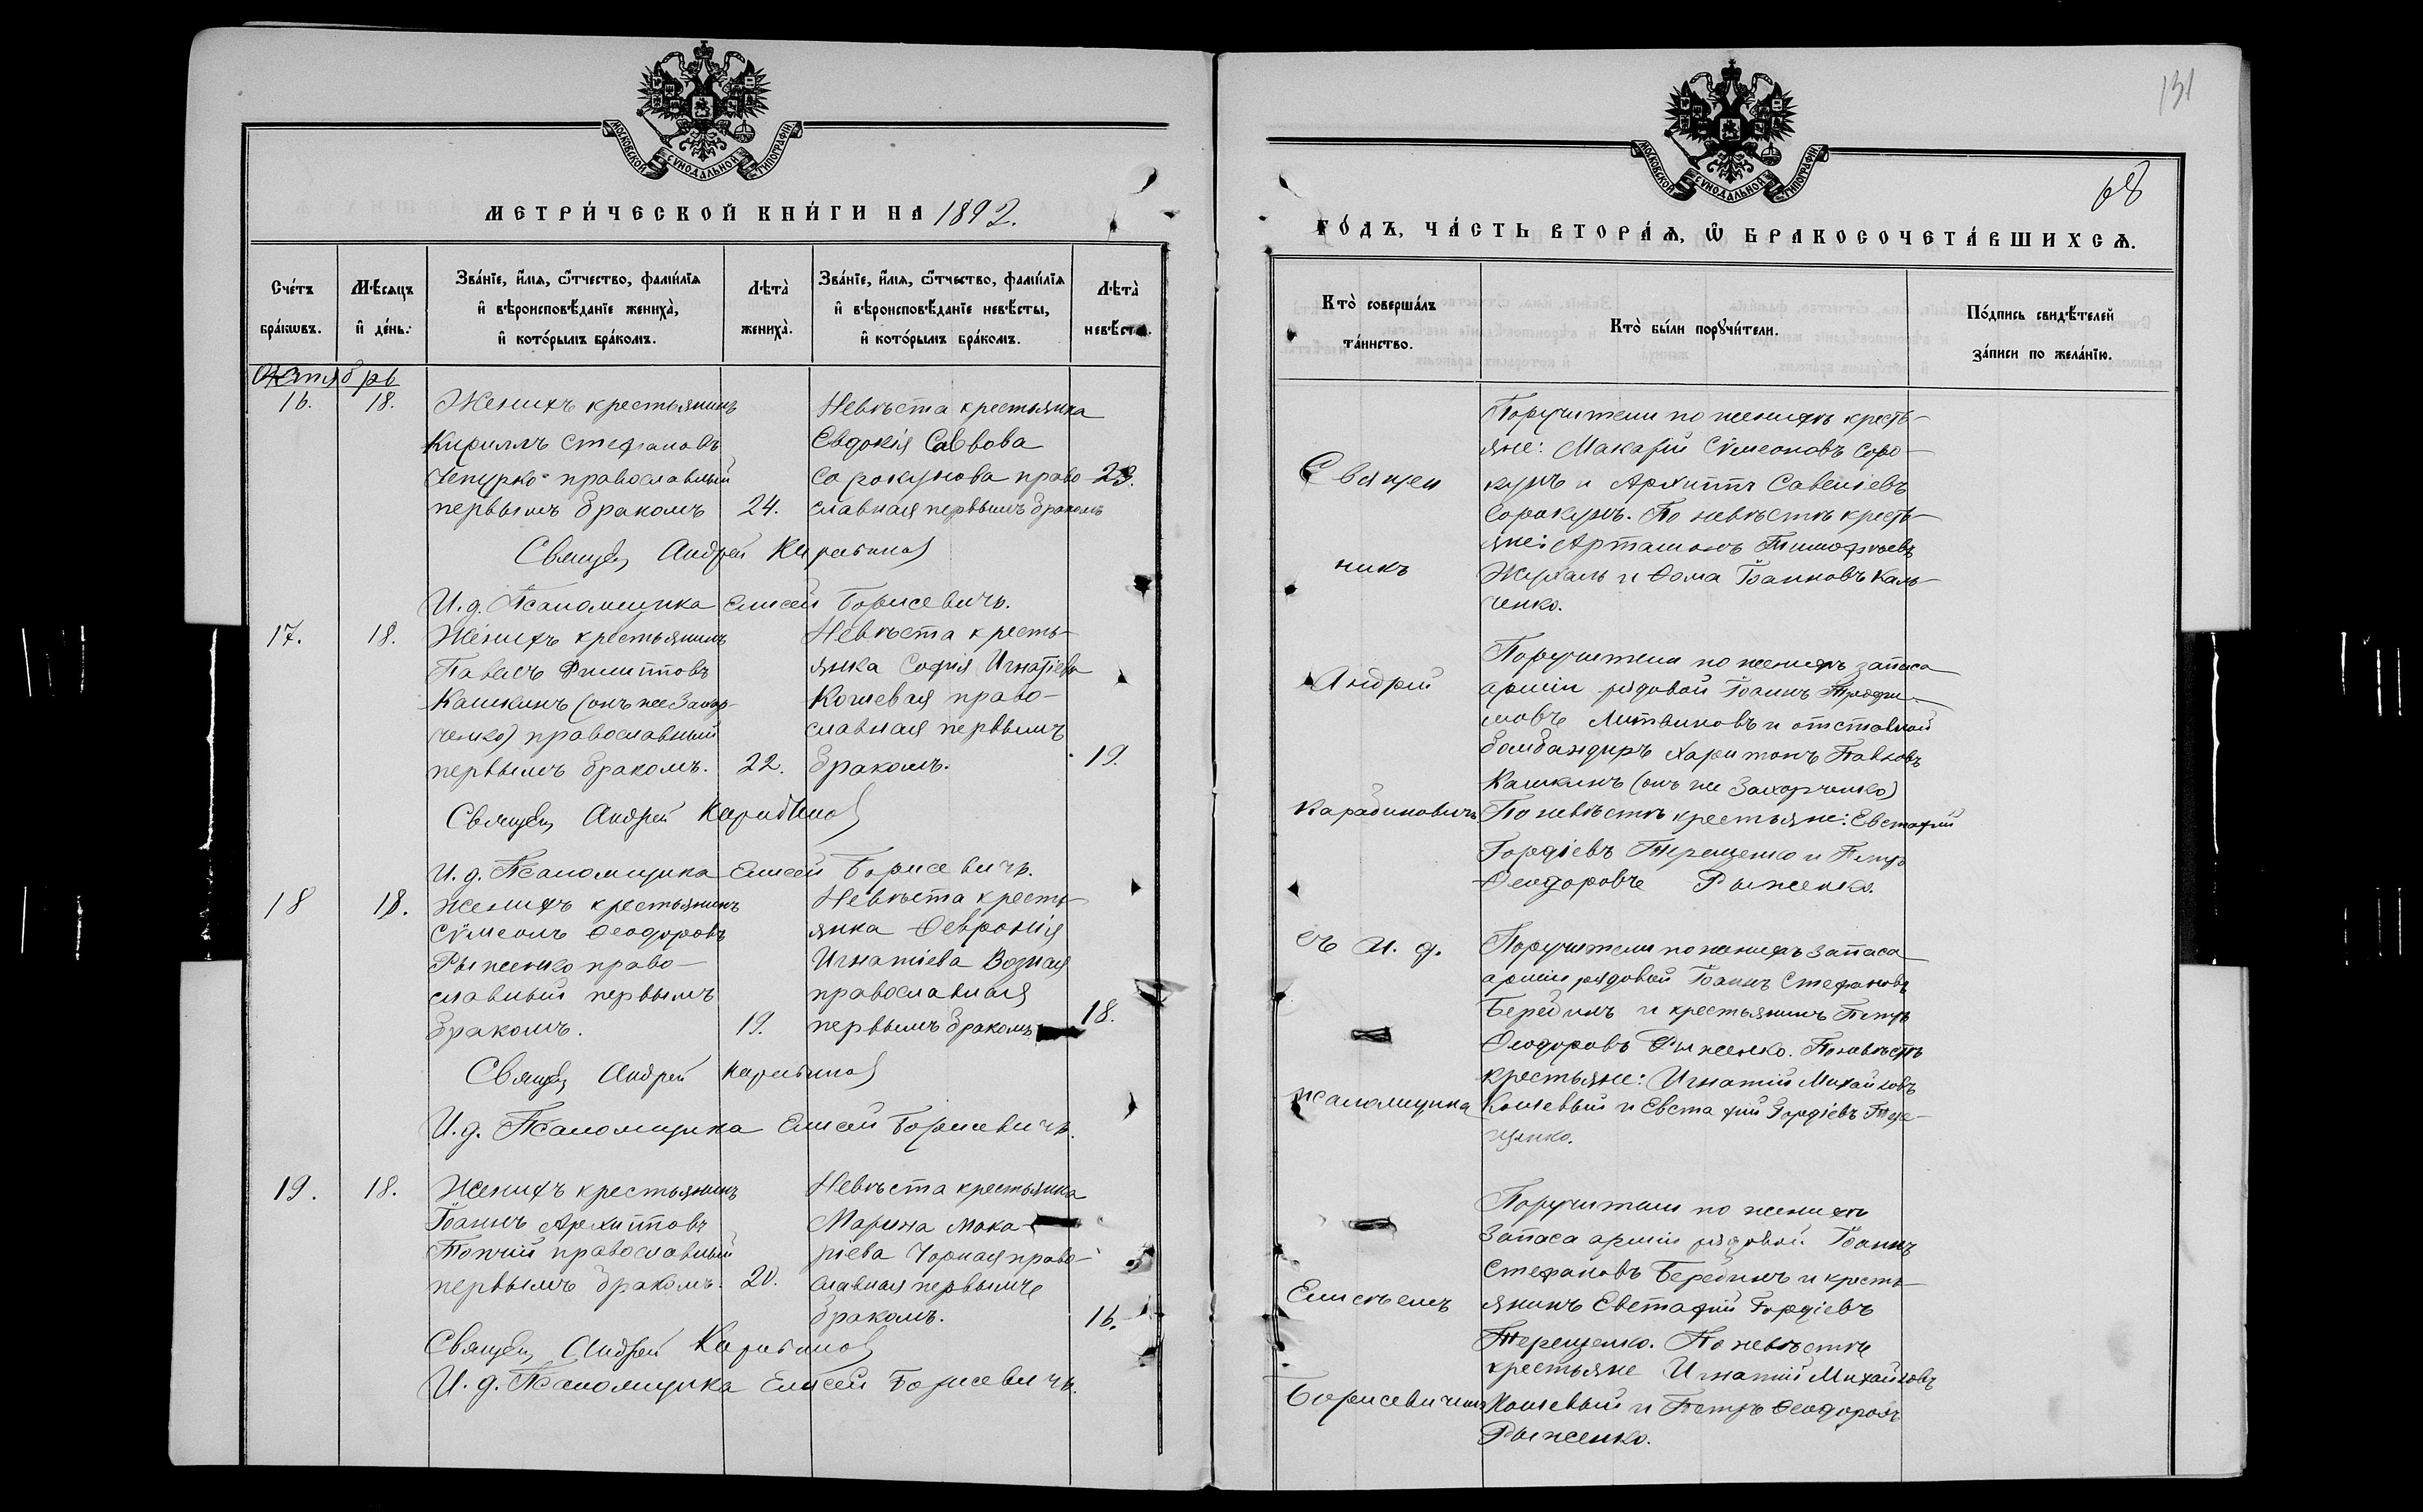 МОСКОВСКОЙ СѴНОДАЛЬНОЙ ТИПОГРАФІИ
МЕТРИ́ЧЕСКОЙ КНИ́ГИ НА 1892.
Сче́тъ бра́кωвъ.
Мѣ́сяцъ и҆ де́нь.
Зва́нїе, и҆́мѧ, ѻ҆́тчество, фами́лїѧ и҆ вѣроисповѣ́данїе жениха̀, и҆ кото́рымъ бра́комъ.
Лѣта̀ жениха̀.
Зва́нїе, и҆́мѧ, ѻ҆́тчество, фами́лїѧ и҆ вѣроисповѣ́данїе невѣ́сты, и҆ кото́рымъ бра́комъ.
Лѣта̀ невѣ́сты.
Октябрь
16. 18. Женихъ крестьянинъ
Кириллъ Стефановъ
Чепурко православный
первымъ бракомъ 24.
Невѣста крестьянка
Евдокія Саввова
Сорокунова право-
славная первымъ бракомъ
23.
Священ Андрей Карабинов
И. д. Псаломщика Елисей Борисевичъ.
17. 18. Женихъ крестьянинъ
Павелъ Филипповъ
Кашкинъ (онъ же Захар-
ченко) православный
первымъ бракомъ. 22.
Невѣста кресть-
янка Софія Игнатіева
Кошевая право-
славная первымъ
бракомъ. 19.
Священ Андрей Карабинов
И. д. Псаломщика Елисей Борисевичъ.
18 18. Женихъ крестьянинъ
Сѵмеонъ Ѳеодоровъ
Рыженко право-
славный первымъ
бракомъ. 19.
Невѣста кресть-
янка Ѳевронія
Игнатіева Возная
православная
первымъ бракомъ 18.
Священ Андрей Карабинов
И. д. Псаломщика Елисей Борисевичъ.
19. 18. Женихъ крестьянинъ
Іоаннъ Архипповъ
Топчій православный
первымъ бракомъ. 20.
Невѣста крестьянка
Марина Мака-
ріева Чорная право-
славная первымъ
бракомъ. 16.
Священ Андрей Карабинов
И. д. Псаломщика Елисей Борисевичъ.
131
68
МОСКОВСКОЙ СѴНОДАЛЬНОЙ ТИПОГРАФІИ
ГО́ДЪ, ЧА́СТЬ ВТОРА́Ѧ, Ѽ БРАКОСОЧЕТА́ВШИХСѦ.
Кто̀ соверша́лъ та́инство.
Кто̀ бы́ли порꙋчи́тели.
По́дпись свидѣ́телей за́писи по жела́нїю.
Священ
никъ
Андрей
Карабиновичъ
съ И. д.
псаломщика
Елисѣемъ
Борисевичемъ
Поручители по женихѣ кресть-
яне: Макарій Сѵмеоновъ Соро-
кунъ и Архиппъ Савеліевъ
Сорокунъ. По невѣстѣ кресть-
яне: Артамонъ Тимофѣевъ
Жураль и Ѳома Іоанновъ Каль-
ченко.
Поручители по женихѣ запаса
арміи рядовой Іоаннъ Трофи-
мовъ Литвиновъ и отставной
бомбандиръ Харитонъ Павловъ
Кашкинъ (онъ же Захарченко)
По невѣстѣ крестьяне: Евстафій
Гордіевъ Терещенко и Петръ
Ѳеодоровъ Рыженко.
Поручители по женихѣ запаса
арміи рядовой Іоаннъ Стефановъ
Берединъ и крестьянинъ Петръ
Ѳеодоровъ Рыженко. По невѣстѣ
крестьяне: Игнатій Михайловъ
Кошевый и Евстафій Гордіевъ Тере-
щенко.
Поручители по женихѣ
запаса арміи рядовой Іоаннъ
Стефановъ Берединъ и кресть-
янинъ Евстафій Гордіевъ
Терещенко. По невѣстѣ
крестьяне Игнатій Михайловъ
Кошевый и Петръ Ѳеодоровъ
Рыженко.